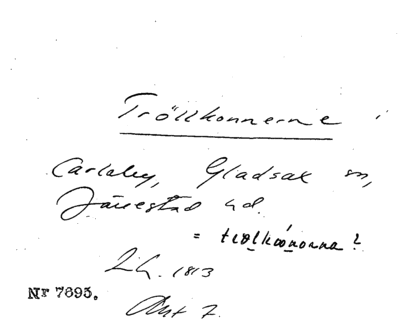 Trollkonnerne i
Carlaby, Gladsax sn,
Järrestad hd.
= trolkoonorna?
1813
Nr 7695.
Akt 7.